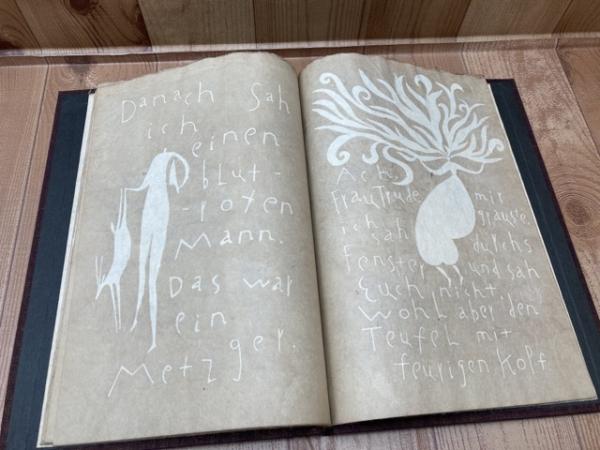 Danach Sah
ich
einen
blut-
-roten
Mann.
Das war
ein
Metzger.
Ach,
Frau Trude mir
ich grauste.
sah durchs
Fenster und sah
Euch nicht,
wohl aber den
Teufel mit
feurigen Kopf